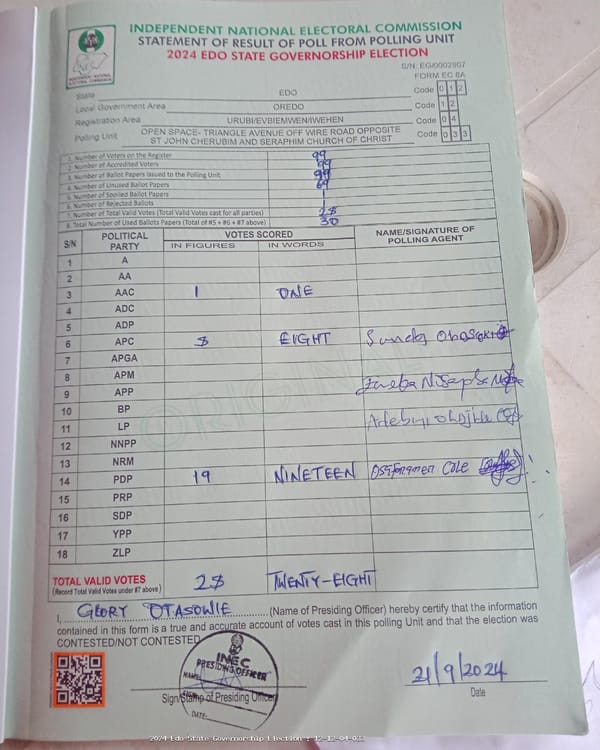 INDEPENDENT NATIONAL ELECTORAL COMMISSION
STATEMENT OF RESULT OF POLL FROM POLLING UNIT
2024 EDO STATE GOVERNORSHIP ELECTION
S/N: EG/0002907
FORM EC 8A
State EDO Code 0 1 2
Local Government Area OREDO Code 1 2
Registration Area URUBI/EVBIEMWEN/IWEHEN Code 0 4
Polling Unit OPEN SPACE- TRIANGLE AVENUE OFF WIRE ROAD OPPOSITE ST JOHN CHERUBIM AND SERAPHIM CHURCH OF CHRIST Code 0 3 3
1. Number of Voters on the Register 99
2. Number of Accredited Voters
3. Number of Ballot Papers Issued to the Polling Unit 99
4. Number of Unused Ballot Papers 69
5. Number of Spoiled Ballot Papers 1
6. Number of Rejected Ballots 1
7. Number of Total Valid Votes (Total Valid Votes cast for all parties) 28
8. Total Number of Used Ballots Papers (Total of #5 + #6 + #7 above) 30
S/N POLITICAL PARTY VOTES SCORED NAME/SIGNATURE OF POLLING AGENT
IN FIGURES IN WORDS
1 A
2 AA
3 AAC 1 ONE
4 ADC
5 ADP
6 APC 8 EIGHT
7 APGA
8 APM
9 APP
10 BP
11 LP
12 NNPP
13 NRM
14 PDP 19 NINETEEN
15 PRP
16 SDP
17 YPP
18 ZLP
TOTAL VALID VOTES 28 TWENTY-EIGHT
(Record Total Valid Votes under #7 above)
I, GLORY OTASOWIE (Name of Presiding Officer) hereby certify that the information
contained in this form is a true and accurate account of votes cast in this polling Unit and that the election was
CONTESTED/NOT CONTESTED.
INEC
PRESIDING OFFICER
NAME:
SIGN:
DATE:
21/9/2024
Sign/Stamp of Presiding Officer Date
2024 Edo State Governorship Election : 12-12-04-033